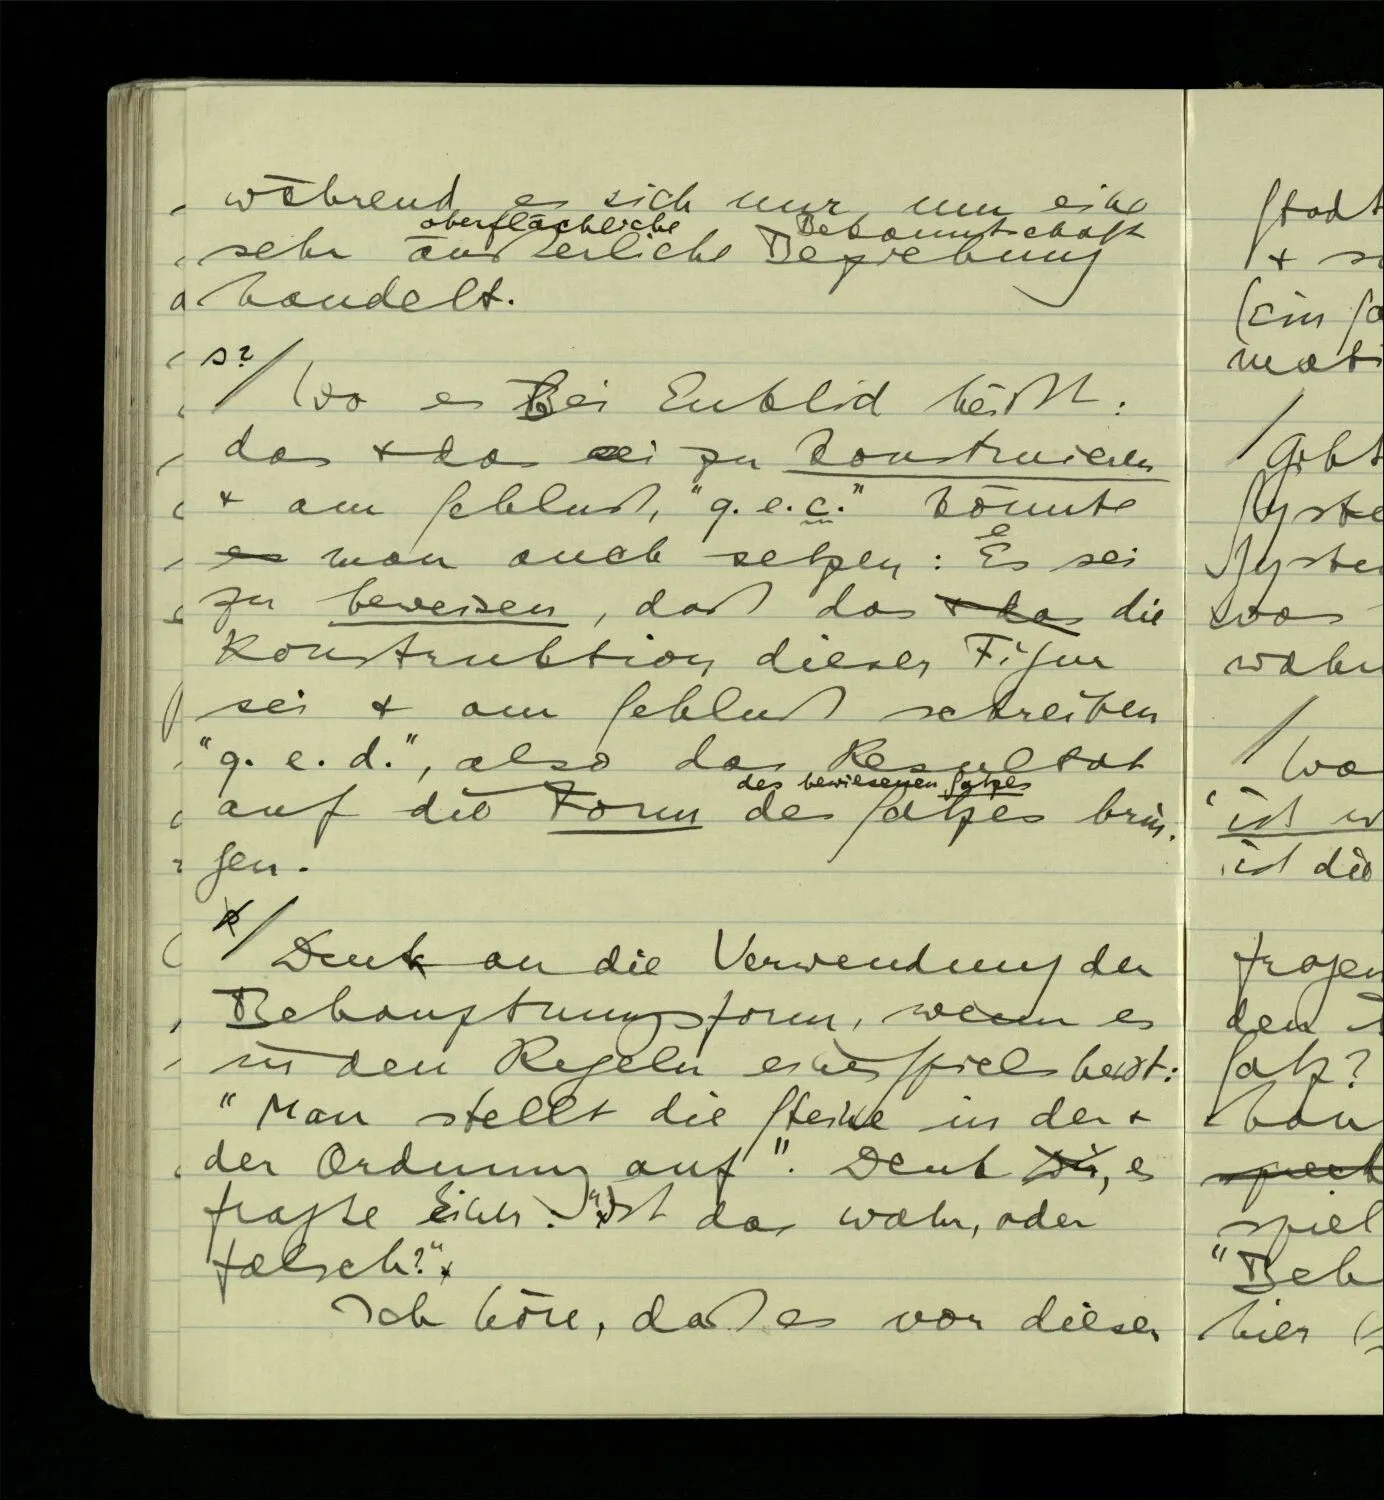 während es sich nur um eine
oberflächliche Bekanntschaft
sehr äußerliche Beziehung
handelt.
S?/
Wo es bei Euklid heißt:
das + das sei zu konstruieren
+ am Schluß, "q.e.c." könnte
es man auch setzen: Es sei
zu beweisen, daß das + das die
Konstruktion dieser Figur
sei + am Schluß schreiben
"q.e.d.", also das Resultat
des bewiesenen Satzes
auf die Form des Satzes brin-
gen.
/
Denk an die Verwendung der
Behauptungsform, wenn es
in den Regeln eines Spiels heißt:
"Man stellt die Steine in der +
der Ordnung auf". Denk Dir, es
fragte Einer: "Ist das wahr, oder
falsch?"
Ich höre, daß es vor dieser
Stadt
+
(ein
/
Gibt
was
/
Wo
"ist
ist die
fragen
den
Satz?
spiel
"Beh
hier